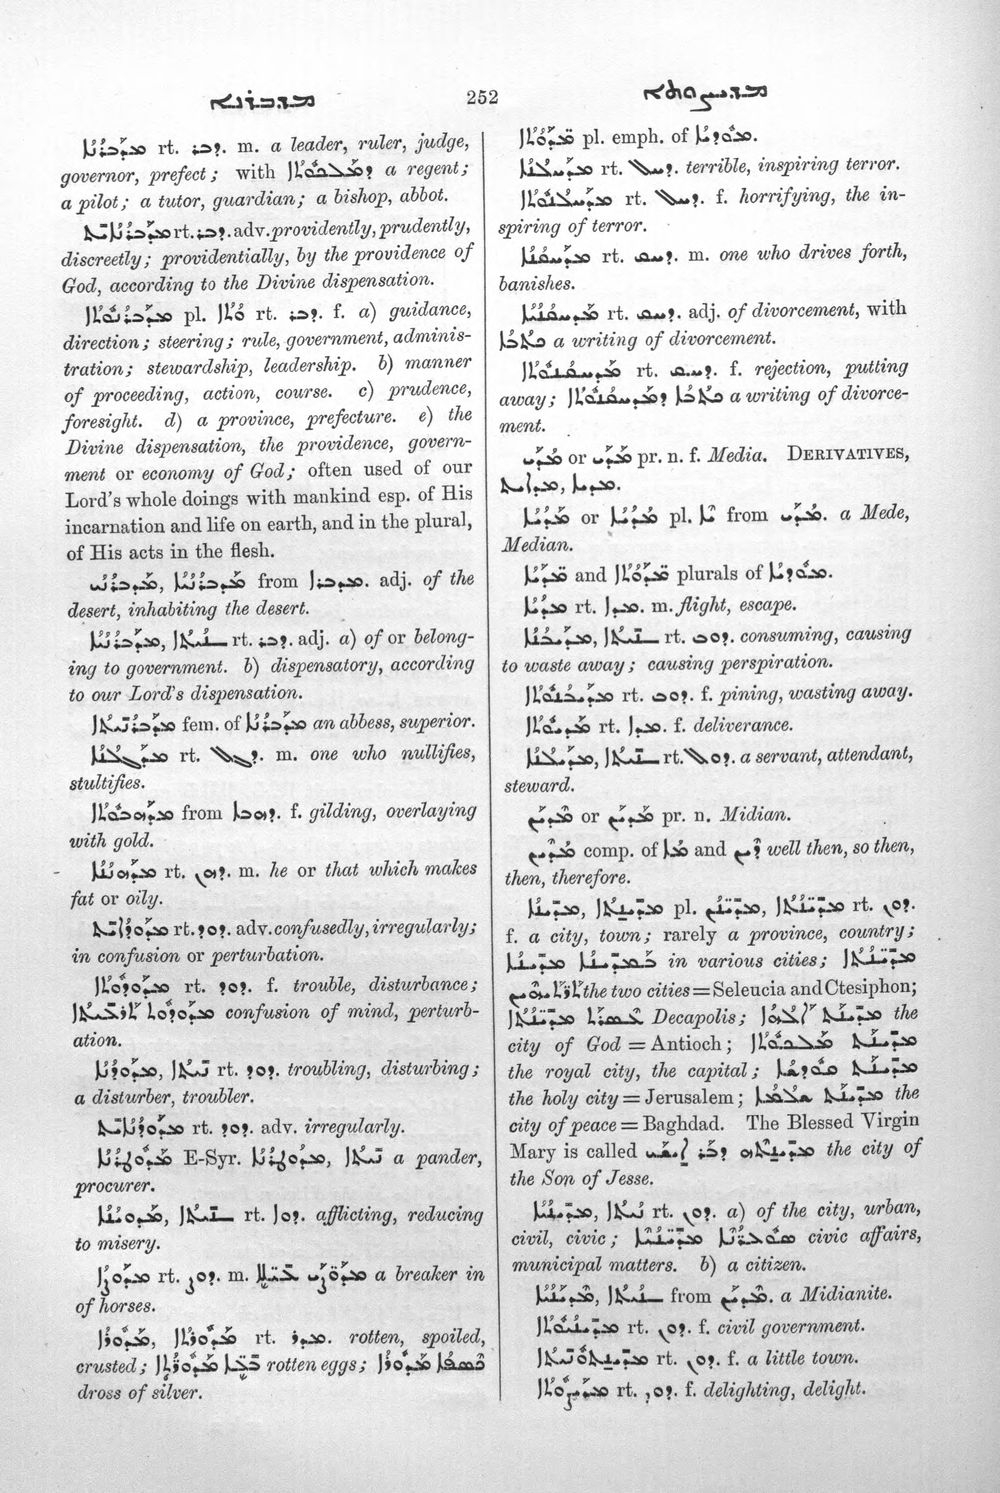 ܡܕܒܪܢܐ 252 ܡܕܝܨܘܬܐ
ܡܕܒܪܢܐ rt. ܕܒܪ. m. a leader, ruler, judge,
governor, prefect; with ܕܡܠܟܘܬܐ a regent;
a pilot; a tutor, guardian; a bishop, abbot.
ܡܕܒܪܢܐܝܬ rt. ܕܒܪ. adv. providently, prudently,
discreetly; providentially, by the providence of
God, according to the Divine dispensation.
ܡܕܒܪܢܘܬܐ pl. ܘܬܐ rt. ܕܒܪ. f. a) guidance,
direction; steering; rule, government, adminis-
tration; stewardship, leadership. b) manner
of proceeding, action, course. c) prudence,
foresight. d) a province, prefecture. e) the
Divine dispensation, the providence, govern-
ment or economy of God; often used of our
Lord's whole doings with mankind esp. of His
incarnation and life on earth, and in the plural,
of His acts in the flesh.
ܡܕܒܪܢܝ, ܡܕܒܪܢܝܐ from ܡܕܒܪܐ. adj. of the
desert, inhabiting the desert.
ܡܕܒܪܢܝܐ, ـܢܝܬܐ rt. ܕܒܪ. adj. a) of or belong-
ing to government. b) dispensatory, according
to our Lord's dispensation.
ܡܕܒܪܢܝܬܐ fem. of ܡܕܒܪܢܐ an abbess, superior.
ܡܕܓܠܢܐ rt. ܕܓܠ. m. one who nullifies,
stultifies.
ܡܕܗܒܘܬܐ from ܕܗܒܐ. f. gilding, overlaying
with gold.
ܡܕܗܢܢܐ rt. ܕܗܢ. m. he or that which makes
fat or oily.
ܡܕܘܕܐܝܬ rt. ܕܘܕ. adv. confusedly, irregularly;
in confusion or perturbation.
ܡܕܘܕܘܬܐ rt. ܕܘܕ. f. trouble, disturbance;
ܡܕܘܕܘܬ ܬܪܥܝܬܐ confusion of mind, perturb-
ation.
ܡܕܘܕܢܐ, ܢܝܬܐ rt. ܕܘܕ. troubling, disturbing;
a disturber, troubler.
ܡܕܘܕܢܐܝܬ rt. ܕܘܕ. adv. irregularly.
E-Syr. ܢܝܬܐ a pander,
procurer.
ܡܕܘܝܢܐ, ـܢܝܬܐ rt. ܕܘܐ. afflicting, reducing
to misery.
ܡܕܘܨܐ rt. ܕܘܨ. m. a breaker in
of horses.
ܡܕܘܪܐ, ܡܕܘܪܬܐ rt. ܡܕܪ. rotten, spoiled,
crusted; rotten eggs;
dross of silver.
pl. emph. of
ܡܕܚܠܢܐ rt. ܕܚܠ. terrible, inspiring terror.
ܡܕܚܠܢܘܬܐ rt. ܕܚܠ. f. horrifying, the in-
spiring of terror.
ܡܕܚܩܢܐ rt. ܕܚܩ. m. one who drives forth,
banishes.
ܡܕܚܩܢܝܐ rt. ܕܚܩ. adj. of divorcement, with
ܟܬܒܐ a writing of divorcement.
ܡܕܚܩܢܘܬܐ rt. ܕܚܩ. f. rejection, putting
away; ܟܬܒܐ ܕܡܕܚܩܢܘܬܐ a writing of divorce-
ment.
ܡܕܝ or ܡܕܝ pr. n. f. Media. Derivatives,
ܡܕܝܐ, ܡܕܐܝܬ.
ܡܕܝܐ or ܡܕܝܐ pl. from ܡܕܝ. a Mede,
Median.
and plurals of
ܡܕܝܐ rt. ܡܕܐ. m. flight, escape.
ܡܕܝܒܢܐ, ـܢܝܬܐ rt. ܕܘܒ. consuming, causing
to waste away; causing perspiration.
ܡܕܝܒܢܘܬܐ rt. ܕܘܒ. f. pining, wasting away.
ܡܕܝܘܬܐ rt. ܡܕܐ. f. deliverance.
ܡܕܝܠܢܐ, ـܢܝܬܐ rt. ܕܘܠ. a servant, attendant,
steward.
ܡܕܝܢ or ܡܕܝܢ pr. n. Midian.
ܡܕܝܢ comp. of ܡܐ and ܕܝܢ well then, so then,
then, therefore.
ܡܕܝܢܐ, ܡܕܝܢܬܐ pl. ܡܕܝܢܢ, ܡܕܝܢܬܐ rt. ܕܘܢ.
f. a city, town; rarely a province, country;
ܒܡܕܝܢܐ ܡܕܝܢܐ in various cities; ܡܕܝܢܬܐ
the two cities = Seleucia and Ctesiphon;
ܥܣܪ ܡܕܝܢܬܐ Decapolis; ܡܕܝܢܬ ܐܠܗܐ the
city of God = Antioch; ܡܕܝܢܬ ܡܠܟܘܬܐ
the royal city, the capital; ܡܕܝܢܬ ܩܘܕܫܐ
the holy city = Jerusalem; ܡܕܝܢܬ ܫܠܡܐ the
city of peace = Baghdad. The Blessed Virgin
Mary is called ܡܕܝܢܬܗ ܕܒܪ ܐܝܫܝ the city of
the Son of Jesse.
ܡܕܝܢܝܐ, ܢܝܬܐ rt. ܕܘܢ. a) of the city, urban,
civil, civic; ܣܘܥܪܢܐ ܡܕܝܢܝܐ civic affairs,
municipal matters. b) a citizen.
ܡܕܝܢܝܐ, ـܢܝܬܐ from ܡܕܝܢ. a Midianite.
ܡܕܝܢܝܘܬܐ rt. ܕܘܢ. f. civil government.
ܡܕܝܢܬܘܢܝܬܐ rt. ܕܘܢ. f. a little town.
ܡܕܝܨܘܬܐ rt. ܕܘܨ. f. delighting, delight.